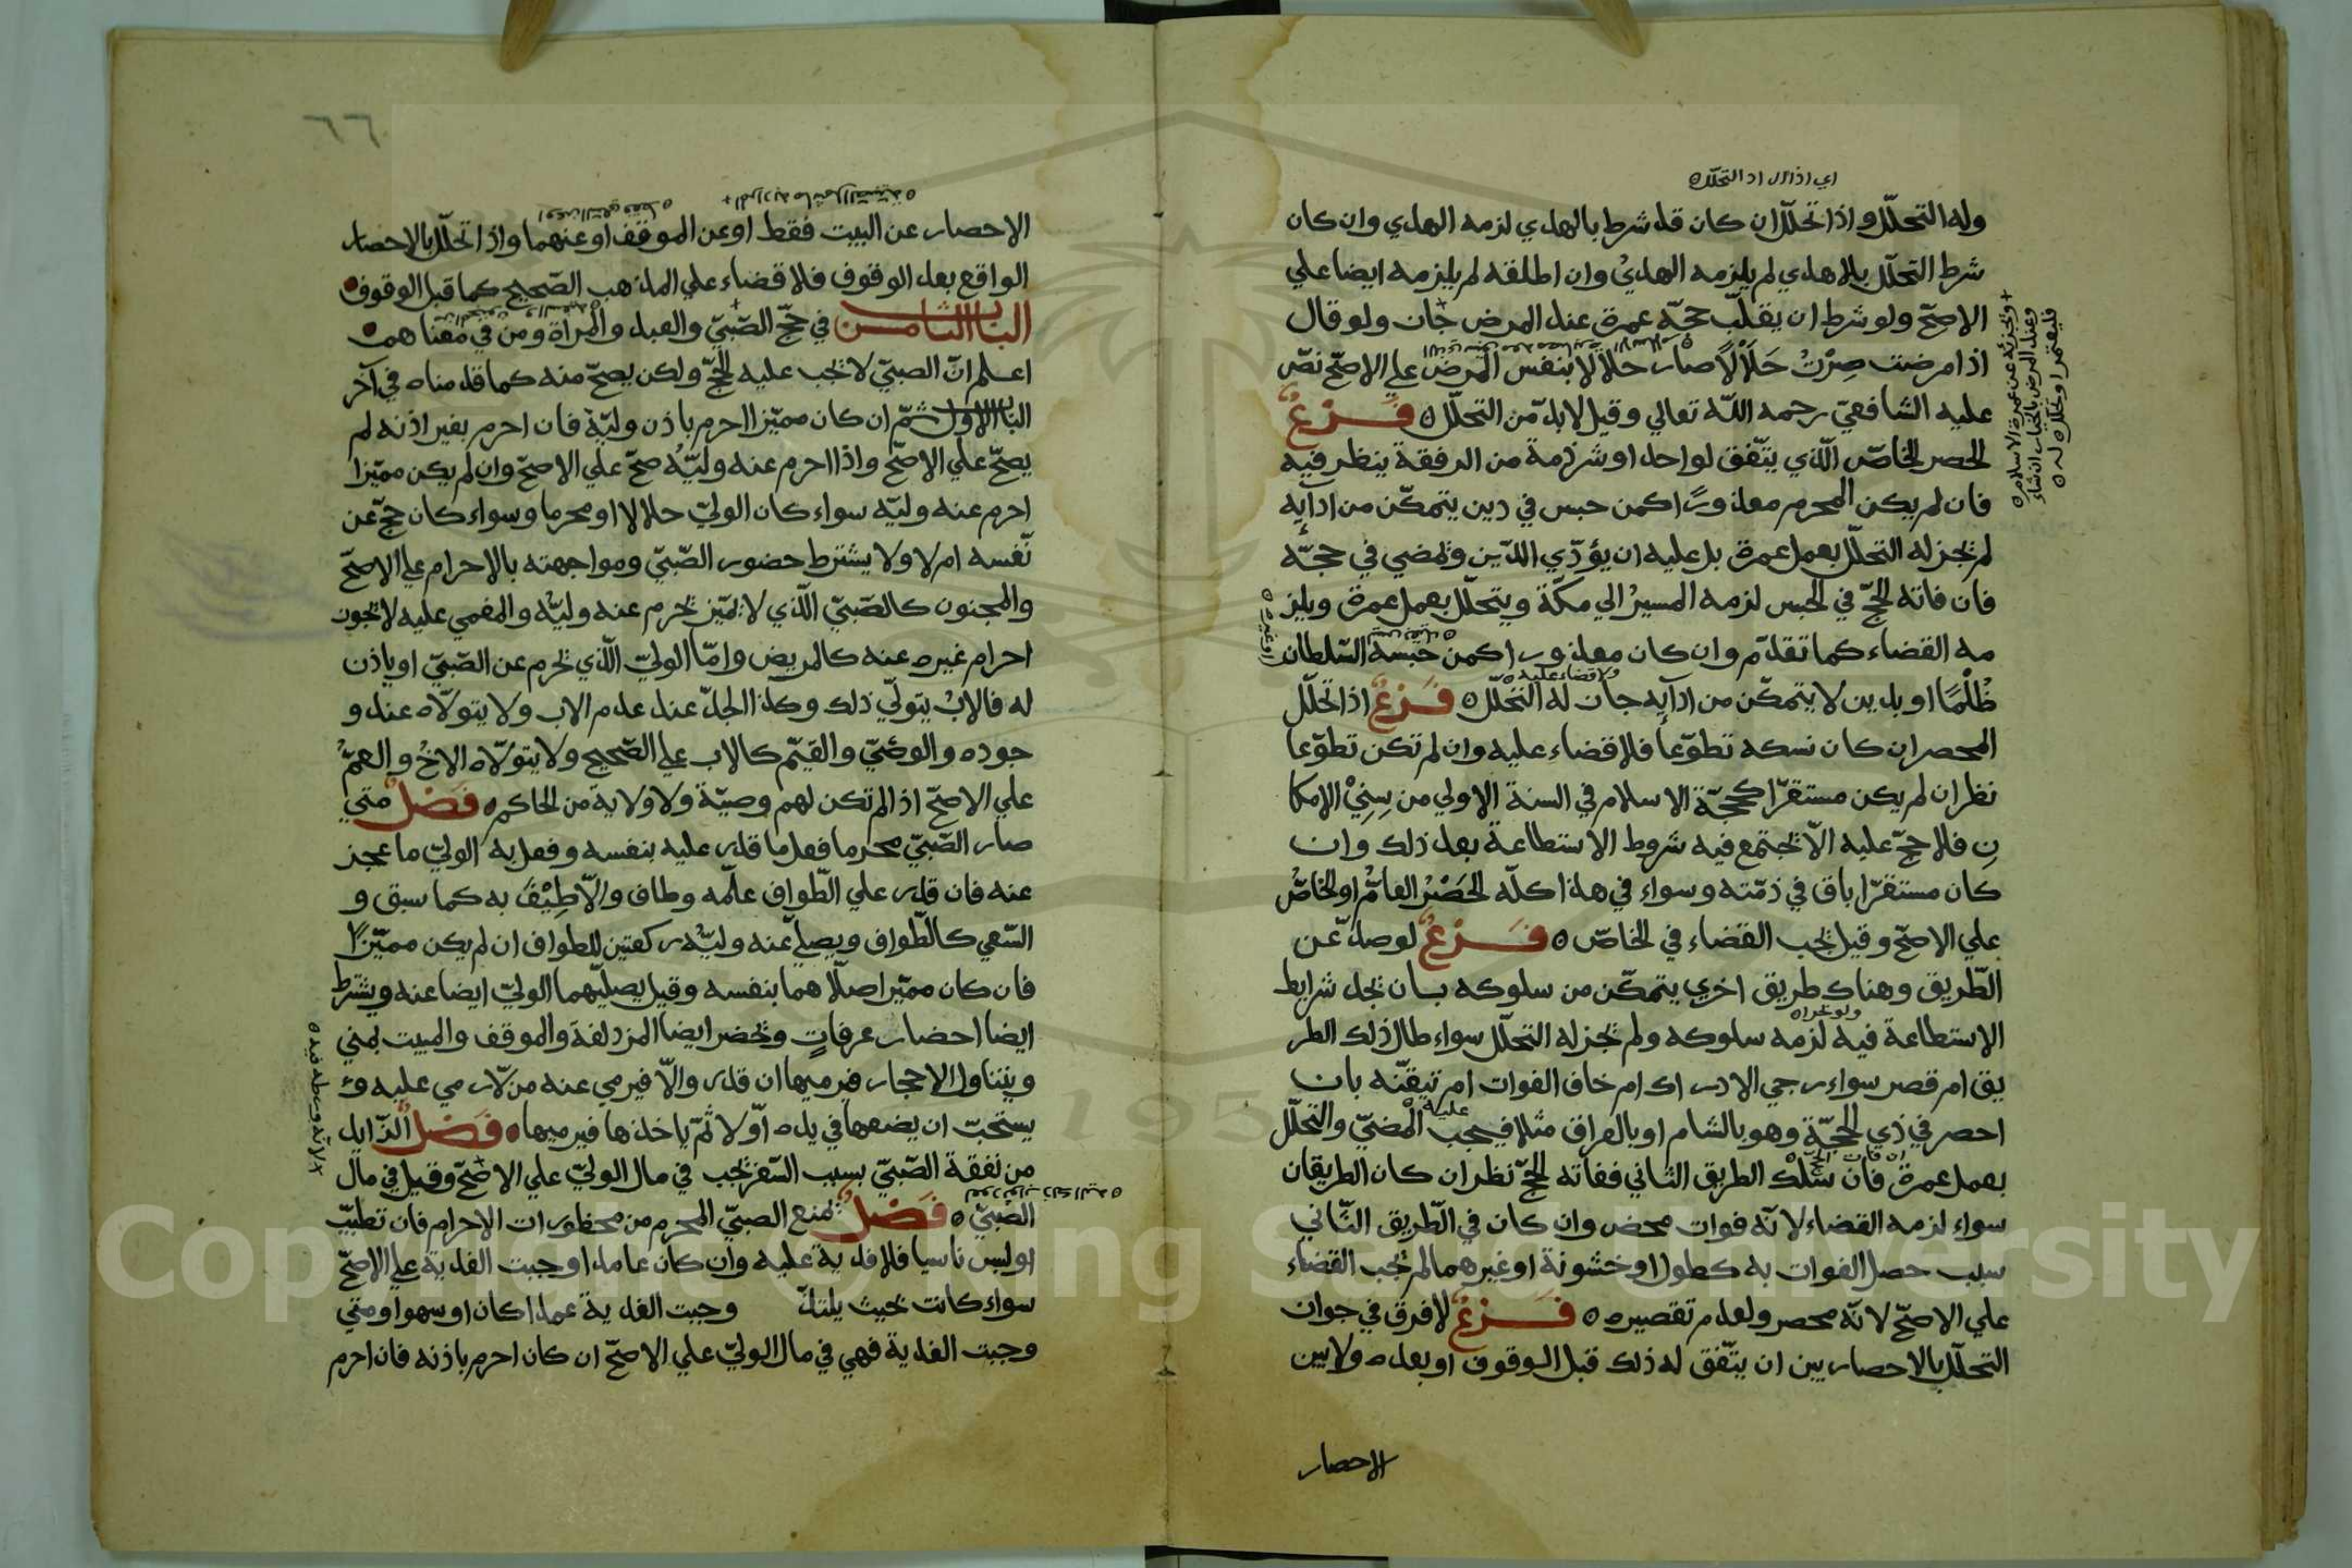 اي اذا اراد التحلل
وله التحلّل واذا تحلّل ان كان قد شرط بالهدي لزمه الهدي وان كان
شرط التحلّل بلا هدي لم يلزمه الهديُ وان اطلقه لم يلزمه ايضا علي
الاصحّ ولو شرط ان يقلّب حجّه عمرة عند المرض جان ولو قال
اذا مرضت صِرْتُ حَلَالًا صار حلالا بنفس المرض علي الاصحّ نصّ
عليه الشافعيّ رحمه اللّه تعالي وقيل لا بدّ من التحلّل ه فَـــرْعٌ
الحصر الخاصّ الّذي يتّفق لواحد او شرذمة من الرفقة ينظر فيه
فان لم يكن المحرم معذورًا كمن حبس في دين يتمكّن من ادآيه
لم تجز له التحلّل بعمل عمرة بل عليه ان يؤدّي الدّين وتمضي في حجّه
فان فاته الحجّ في الحبس لزمه المسيرُ الي مكّة ويتحلّل بعمل عمرة ويلز
مه القضاء كما تقدّم وان كان معذورا كمن حبسه السّلطان
ولا قضاء عليه ه
ظُلْمًا او بدين لا يتمكّن من ادآيه جان له التحلّل ه فَــرْعٌ اذا تحلّل
المحصر ان كان نسكه تطوّعا فلا قضاء عليه وان لم تكن تطوّعا
نظر ان لم يكن مستقرّا كحجّة الاسلام في السنة الاولي من سِنِيْ الإمكا
نِ فلا حجّ عليه الّا تجتمع فيه شروط الاستطاعة بعد ذلك وان
كان مستقرّا باق في ذمّته وسواء في هذا كلّه الحَصْرُ العامُّ او الخاصُّ
علي الاصحّ وقيل تجب القضاء في الخاصّ ه فَــرْعٌ لو صدّ عن
الطّريق وهناك طريق اخري يتمكّن من سلوكه بان تجد شرايط
الاستطاعة فيه لزمه سلوكه ولم تجز له التحلّل سواء طال ذلك الطر
يق ام قصر سواء رجي الادراك ام خاف الفوات ام تيقّنه بان
احصر في ذي الحجّة وهو بالشام او بالعراق مثلا فيجب عليه المضيّ والتّحلّل
بعمل عمرة فان سلك الطريق الثاني ففاته الحجّ نظر ان كان الطريقان
سواء لزمه القضاء لانّه فوات محض وان كان في الطّريق الثّاني
سبب حصل الفوات به كطول او خشونة او غيرهما لم تجب القضاء
علي الاصحّ لانّه محصر ولعدم تقصيره ه فَــرْعٌ لا فرق في جوان
التحلّل بالاحصار بين ان يتّفق له ذلك قبل الوقوف او بعده ولا بين
الاحصار
+ وتجزئه عن عمرة الاسلام ه
وعند المرض بالخيار ان شاء
٦٦
الاحصار عن البيت فقط او عن الموقف او عنهما واذا تحلّل بالاحصار
الواقع بعد الوقوف فلا قضاء علي المذهب الصّحيح كما قبل الوقوف
الباب الثامن في حجّ الصّبيّ والعبد والمراة ومن في معناهم
اعلم انّ الصبيّ لا تجب عليه الحجّ ولكن يصحّ منه كما قدمناه في آخر
الباب الاول ثمّ ان كان مميّزا احرم باذن وليّه فان احرم بغير اذنه لم
يصحّ علي الاصحّ واذا احرم عنه وليّه صحّ علي الاصحّ وان لم يكن مميّزا
احرم عنه وليّه سواء كان الوليّ حلالا او محرما وسواء كان حجّ عن
نّفسه ام لا ولا يشترط حضور الصّبيّ ومواجهته بالاحرام علي الاصحّ
والمجنون كالصّبيّ الّذي لا تميّز تحرم عنه وليّه والمغمي عليه لا تجون
احرام غيره عنه كالمريض وامّا الوليّ الّذي تحرم عن الصّبيّ او ياذن
له فالابُ يتولّي ذلك وكذا الجدّ عند عدم الاب ولا يتولّاه عند و
جوده والوصيّ والقيّم كالاب علي الصّحيح ولا يتولّاه الاخُ والعمُّ
علي الاصحّ اذا لم تكن لهم وصيّة ولا ولاية من الحاكم ه فَصْلٌ متي
صار الصّبيّ محرما فعل ما قدر عليه بنفسه وفعل به الوليّ ما عجز
عنه فان قدر علي الطّواف علّمه وطاف والّا طِيْفَ به كما سبق و
السّعي كالطّواف ويصلّي عنه وليّه ركعتين للطواف ان لم يكن مميّزًا
فان كان مميّزا صلّاهما بنفسه وقيل يصلّيهما الوليّ ايضا عنه ويشترط
ايضا احضار عرفاتٍ وتحضر ايضا المزدلفة والموقف والمبيت بمني
ويتناول الاحجار فيرميها ان قدر والّا فيرمي عنه من لّا رمي عليه و
يستحبّ ان يضعها في يده اوّلا ثمّ ياخذها فيرميها ه فَصْلٌ الزّايد
من نفقة الصّبيّ بسبب السّفر تجب في مال الوليّ علي الاصحّ وقيل في مال
الصّبيّ ه فَصْلٌ تمنع الصبيّ المحرم من محظورات الاحرام فان تطيّب
او لبس ناسيا فلا فدية عليه وان كان عامدا وجبت الفدية علي الاصحّ
سواء كانت تحيث يلتذّ وجبت الفدية عمدا كان او سهوا ومتي
وجبت الفدية فهي في مال الوليّ علي الاصحّ ان كان احرم باذنه فان احرم
Copyright © King Saud University
195